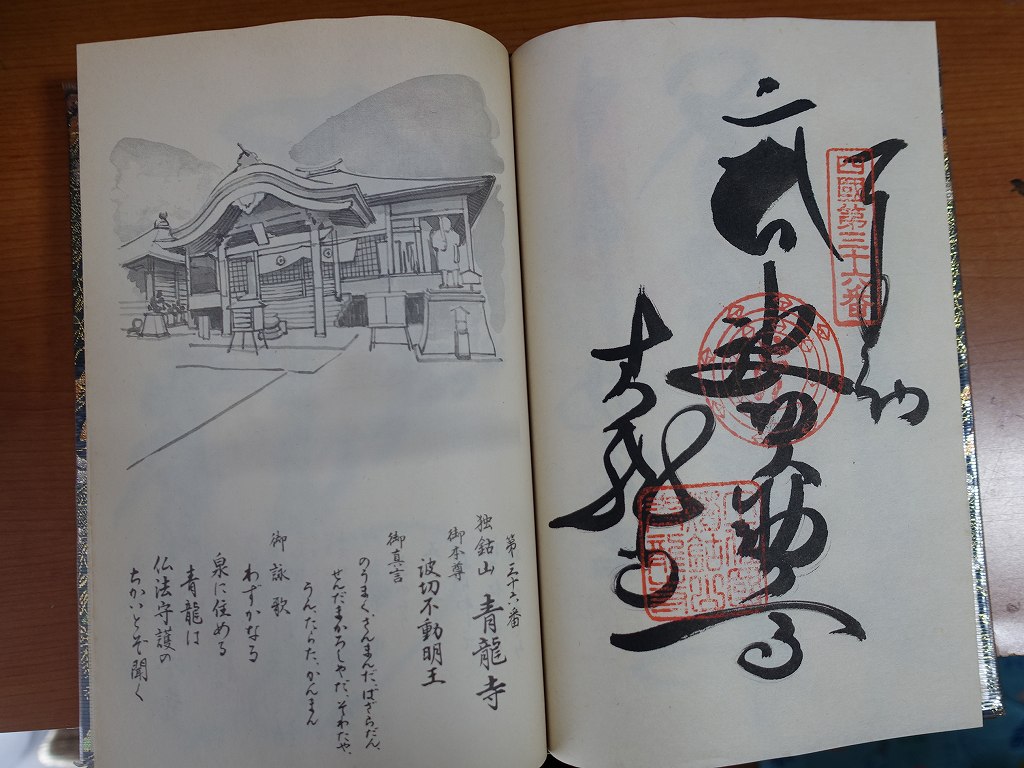 四國第三十六番
奉納
青龍寺
第三十六番
独鈷山 青龍寺
御本尊
波切不動明王
御真言
のうまく、さんまんだ、ばざらだん、
せんだまかろしゃだ、そわたや、
うん、たらた、かんまん
御詠歌
わずかなる
泉に住める
青龍は
仏法守護の
ちかいとぞ聞く